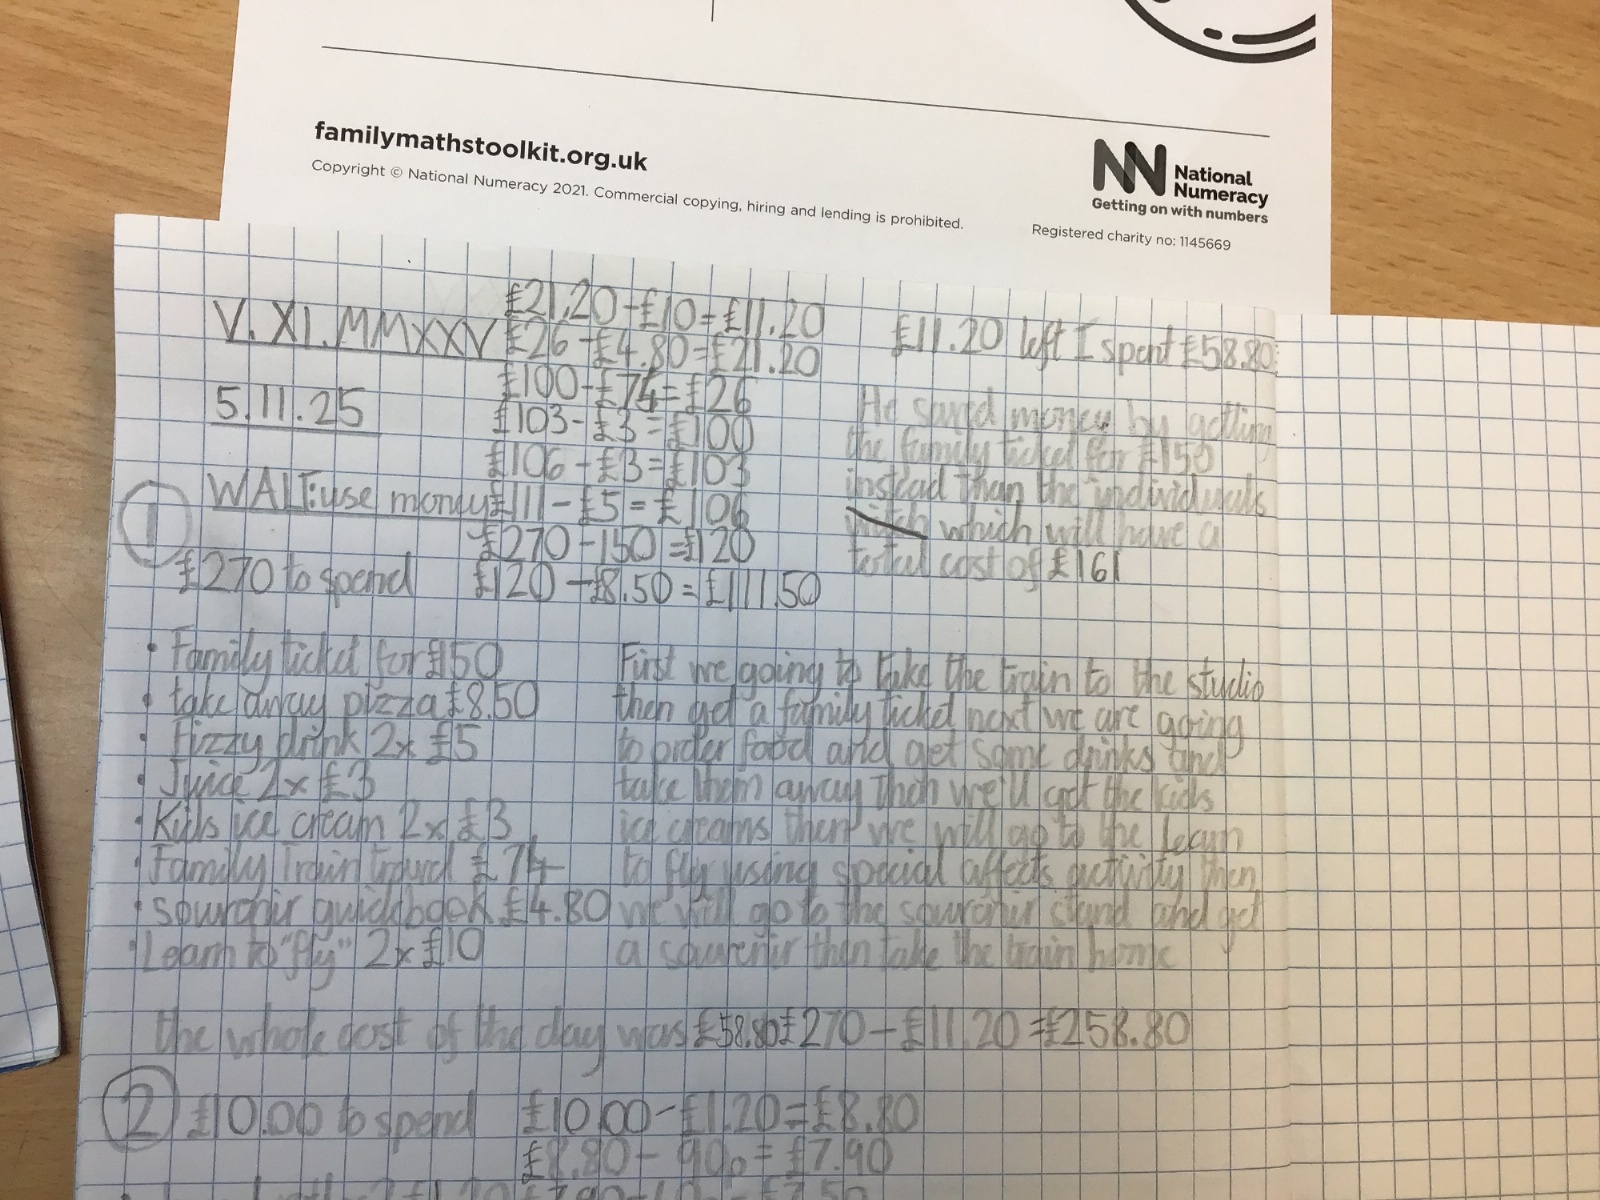 familymathstoolkit.org.uk
Copyright © National Numeracy 2021. Commercial copying, hiring and lending is prohibited.
National
Numeracy
Getting on with numbers
Registered charity no: 1145669
V.XI.MMXXV
5.11.25
WALT: use money
£21.20-£10=£11.20
£26-£4.80=£21.20
£100-£74=£26
£103-£3=£100
£106-£3=£103
£111-£5=£106
£270-150=£120
£120-£8.50=£111.50
£11.20 left I spent £58.80
He saved money by getting
the family ticket for £150
instead than the individuals
witch which will have a
total cost of £161
1
£270 to spend
• Family ticket for £150
• take away pizza £8.50
• Fizzy drink 2x £5
• Juice 2x £3
• Kids ice cream 2x £3
• Family Train travel £74
• souvenir guidebook £4.80
• Learn to "fly" 2x £10
First we going to take the train to the studio
then get a family ticket next we are going
to order food and get some drinks and
take them away then we'll get the kids
ice creams then we will go to the learn
to fly using special affects activity then
we will go to the souvenir stand and get
a souvenir then take the train home
the whole cost of the day was £58.80 £270-£11.20=£258.80
2
£10.00 to spend
£10.00-£1.20=£8.80
£8.80-90p=£7.90